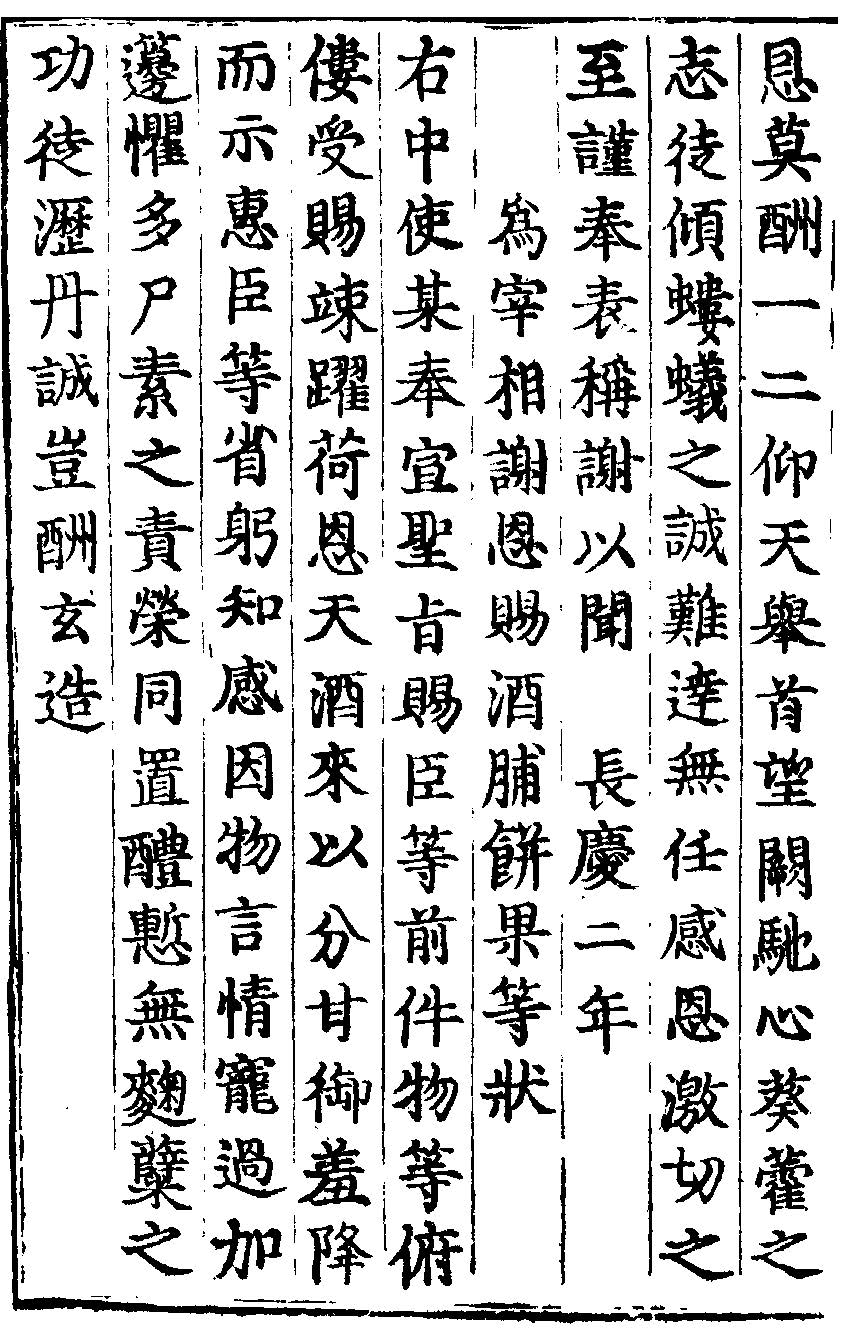 恩莫酬一二仰天舉首望闕馳心葵藿之
志徒傾螻蟻之誠難達無任感恩激切之
至謹奉表稱謝以聞　長慶二年
爲宰相謝恩賜酒脯餅果等狀
右中使某奉宣聖旨賜臣等前件物等俯
僂受賜竦躍荷恩天酒來以分甘御羞降
而示惠臣等省躬知感因物言情寵過加
籩懼多尸素之責榮同置醴慙無麴糵之
功徒瀝丹誠豈酬玄造